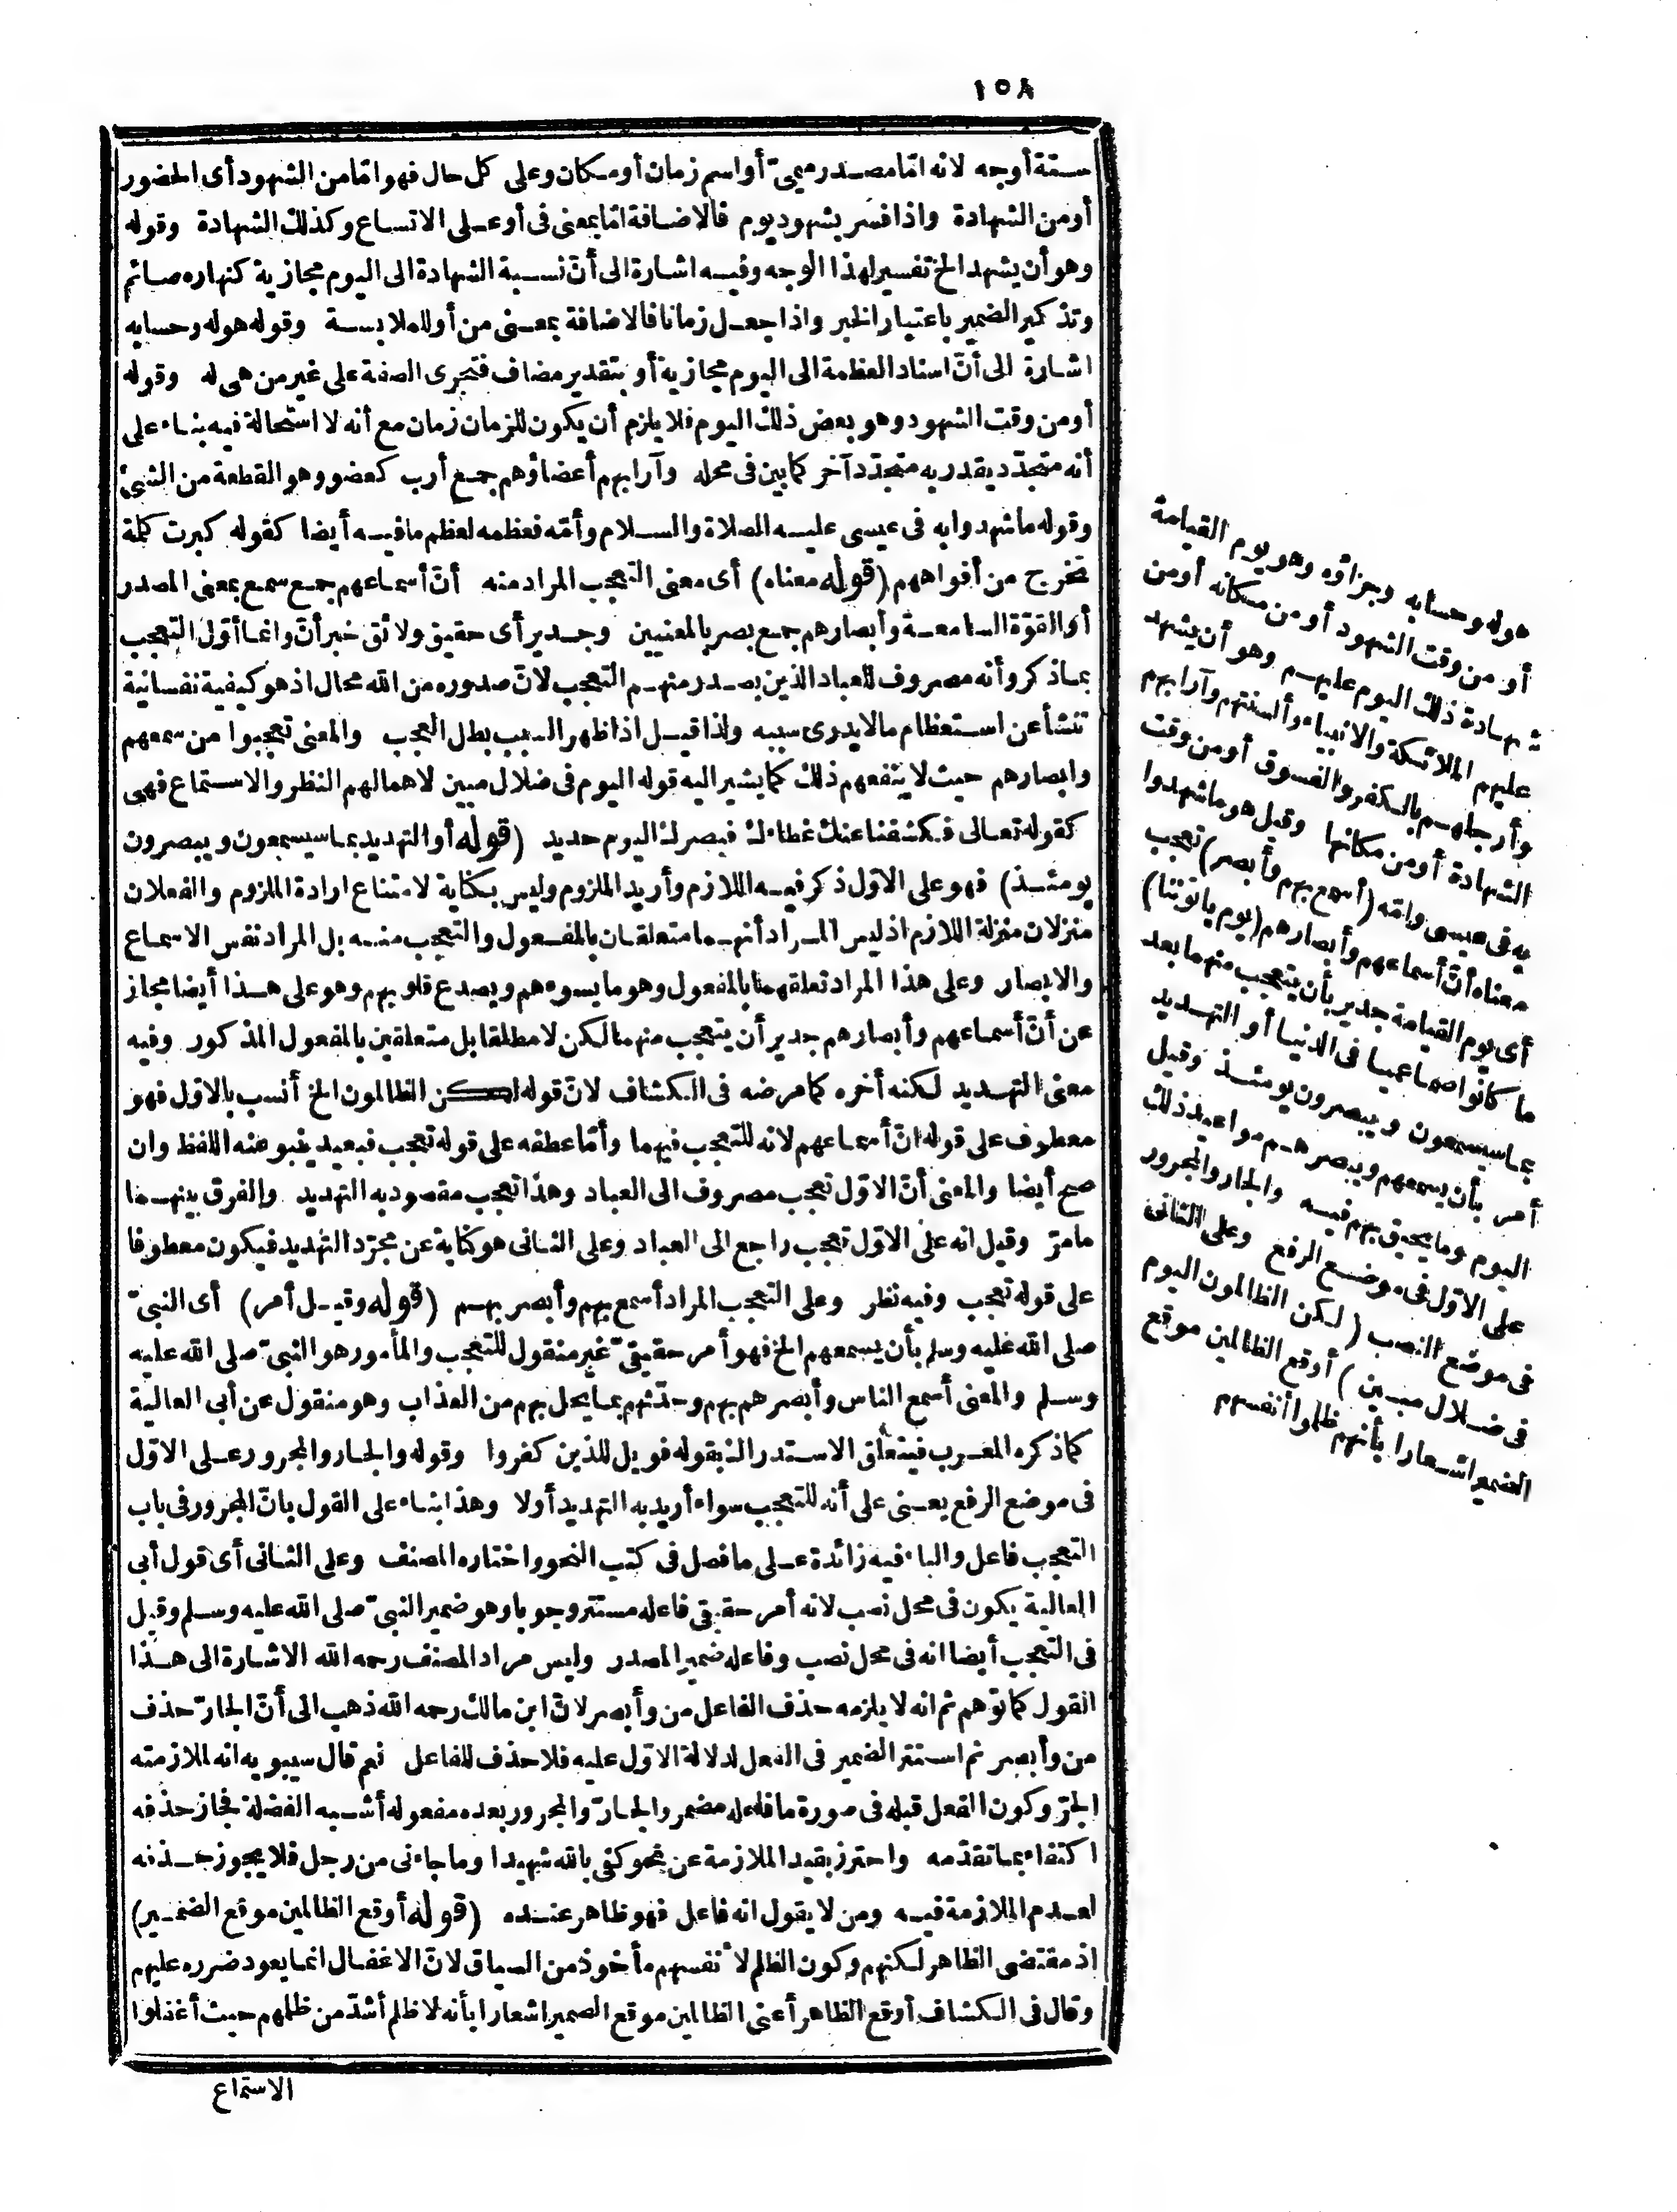 ١٥٨
ستة أوجه لانه امّا مصدر ميمىّ أو اسم زمان أو مكان وعلى كل حال فهو امّا من الشهود أى الحضور
أو من الشهادة واذا فسر بشهود يوم فالاضافة امّا بمعنى فى أو على الاتساع وكذلك الشهادة وقوله
وهو أن يشهد الخ تفسير لهذا الوجه وفيه اشارة الى أنّ نسبة الشهادة الى اليوم مجازية كنهاره صائم
وتذكير الضمير باعتبار الخبر واذا جعل زمانا فالاضافة بمعنى من أو للملابسة وقوله هوله وحسابه
اشارة الى أنّ اسناد العظمة الى اليوم مجازية أو بتقدير مضاف فتجرى الصفة على غير من هى له وقوله
أو من وقت الشهود وهو بعض ذلك اليوم فلا يلزم أن يكون للزمان زمان مع أنه لا استحالة فيه بناء على
أنه متجدّد يقدر به متجدّد آخر كما بين فى محله وآرابهم أعضاؤهم جمع أرب كعضو وهو القطعة من الشئ
وقوله ما شهدوا به فى عيسى عليه الصلاة والسلام وأمّه فعظمه لعظم ما فيه أيضا كقوله كبرت كلمة
تخرج من أفواههم (قوله معناه) أى معنى التعجب المراد منه أنّ أسماعهم جمع سمع بمعنى المصدر
أو القوّة السامعة وأبصارهم جمع بصر بالمعنيين وجدير أى حقيق ولائق خبر أنّ وانما أوّل التعجب
بما ذكر وأنه مصروف للعباد الذين يصدر منهم التعجب لانّ صدوره من الله محال اذ هو كيفية نفسانية
تنشأ عن استعظام ما لا يدرى سببه ولذا قيل اذا ظهر السبب بطل العجب والمعنى تعجبوا من سمعهم
وابصارهم حيث لا ينفعهم ذلك كما يشير اليه قوله اليوم فى ضلال مبين لاهمالهم النظر والاستماع فهى
كقوله تعالى فكشفنا عنك غطاءك فبصرك اليوم حديد (قوله أو التهديد بما سيسمعون ويبصرون
يومئذ) فهو على الاوّل ذكر فيه اللازم وأريد الملزوم وليس بكناية لامتناع ارادة الملزوم والفعلان
منزلان منزلة اللازم اذ ليس المراد أنهما متعلقان بالمفعول والتعجب منه بل المراد نفس الاسماع
والابصار وعلى هذا المراد تعلقهما بالمفعول وهو ما يسوءهم ويصدع قلوبهم وهو على هذا أيضا مجاز
عن أنّ أسماعهم وأبصارهم جدير أن يتعجب منهما لكن لا مطلقا بل متعلقين بالمفعول المذكور وفيه
معنى التهديد لكنه أخره كما مرضه فى الكشاف لانّ قوله لكن الظالمون الخ أنسب بالاوّل فهو
معطوف على قوله انّ أسماعهم لانه للتعجب فيهما وأمّا عطفه على قوله تعجب فبعيد ينبو عنه اللفظ وان
صح أيضا والمعنى أنّ الاوّل تعجب مصروف الى العباد وهذا تعجب مقصود به التهديد والفرق بينهما
ما مرّ وقيل انه على الاوّل تعجب راجع الى العباد وعلى الثانى هو كناية عن مجرّد التهديد فيكون معطوفا
على قوله تعجب وفيه نظر وعلى التعجب المراد أسمع بهم وأبصر بهم (قوله وقيل أمر) أى النبىّ
صلى الله عليه وسلم بأن يسمعهم الخ فهو أمر حقيقىّ غير منقول للتعجب والمأمور هو النبىّ صلى الله عليه
وسلم والمعنى أسمع الناس وأبصرهم بهم وحدّثهم بما يحل بهم من العذاب وهو منقول عن أبى العالية
كما ذكره المعرب فيتعلق الاستدراك بقوله فويل للذين كفروا وقوله والجار والمجرور على الاوّل
فى موضع الرفع يعنى على أنه للتعجب سواء أريد به التهديد أولا وهذا بناء على القول بانّ المجرور فى باب
التعجب فاعل والباء فيه زائدة على ما فصل فى كتب النحو واختاره المصنف وعلى الثانى أى قول أبى
العالية يكون فى محل نصب لانه أمر حقيقى فاعله مستتر وجوبا وهو ضمير النبىّ صلى الله عليه وسلم وقيل
فى التعجب أيضا انه فى محل نصب وفاعله ضمير المصدر وليس مراد المصنف رحمه الله الاشارة الى هذا
القول كما توهم ثم انه لا يلزمه حذف الفاعل من وأبصر لانّ ابن مالك رحمه الله ذهب الى أنّ الجارّ حذف
من وأبصر ثم استتر الضمير فى الفعل لدلالة الاوّل عليه فلا حذف للفاعل نعم قال سيبويه انه لملازمته
الجرّ وكون الفعل قبله فى صورة ما فاعله مضمر والجارّ والمجرور بعده مفعوله أشبه الفضلة فجاز حذفه
اكتفاء بما تقدّمه واحترز بقيد الملازمة عن نحو كفى بالله شهيدا وما جاءنى من رجل فلا يجوز حذفه
لعدم الملازمة فيه ومن لا يقول انه فاعل فهو ظاهر عنده (قوله أوقع الظالمين موقع الضمير)
اذ مقتضى الظاهر لكنهم وكون الظلم لأنفسهم مأخوذ من السياق لانّ الاغفال انما يعود ضرره عليهم
وقال فى الكشاف أوقع الظاهر أعنى الظالمين موقع الضمير اشعارا بأنه لا ظلم أشدّ من ظلمهم حيث أغفلوا
الاستماع
هوله وحسابه وجزاؤه وهو يوم القيامة
أو من وقت الشهود أو من مكانه أو من
شهادة ذلك اليوم عليهم وهو أن يشهد
عليهم الملائكة والانبياء وألسنتهم وآرابهم
وأرجلهم بالكفر والفسوق أو من وقت
الشهادة أو من مكانها وقيل هو ما شهدوا
به فى عيسى وامّه (أسمع بهم وأبصر) تعجب
معناه أنّ أسماعهم وأبصارهم (يوم يأتوننا)
أى يوم القيامة جدير بأن يتعجب منهما بعد
ما كانوا صما عميا فى الدنيا أو التهديد
بما سيسمعون ويبصرون يومئذ وقيل
أمر بأن يسمعهم ويبصرهم مواعيد ذلك
اليوم وما يحيق بهم فيه والجار والمجرور
على الاوّل فى موضع الرفع وعلى الثانى
فى موضع النصب (لكن الظالمون اليوم
فى ضلال مبين) أوقع الظالمين موقع
الضمير اشعارا بأنهم ظلموا أنفسهم